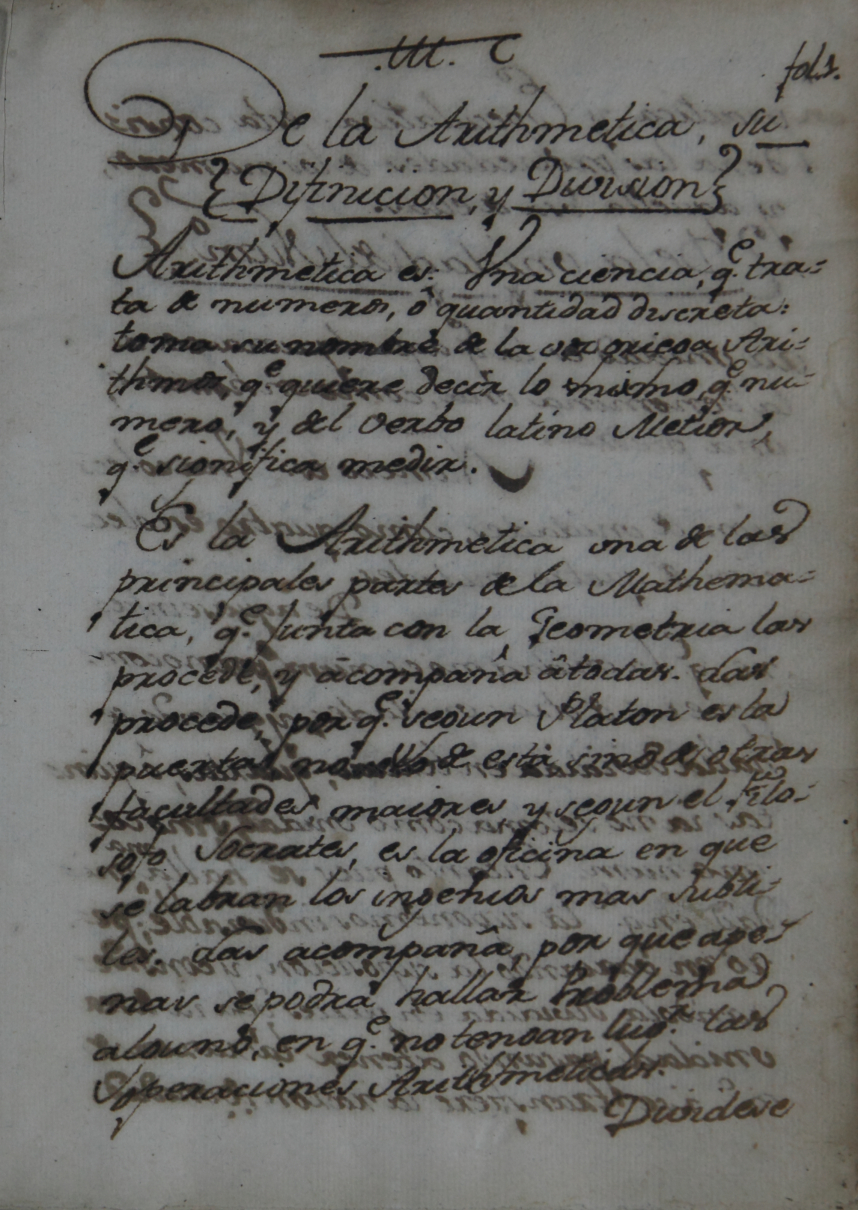 fol. 1.
De la Arithmetica, su
Difinicion, y Division
Arithmetica es: Vna ciencia, q.e tra=
ta de numeros, ô quantidad discreta:
toma su nombre de la voz griega Ari=
thmos, q.e quiere decir lo mismo, q.e nu=
mero, y del verbo latino Metior,
q.e significa medir.
Es la Arithmetica vna de las
principales partes de la Mathema=
tica, q.e junta con la Geometria las
procede, y acompaña â todas. las
procede, por q.e segun Platon es la
puerta no sólo de esta sino de otras
facultades maiores y segun el Filo=
sofo Socrates, es la oficina en que
se labran los ingenios mas subti=
les. las acompaña, por que ape=
nas se podrá hallar Problema
alguno, en q.e no tengan lug.r las
operaciones Arithmeticas.
Dividese